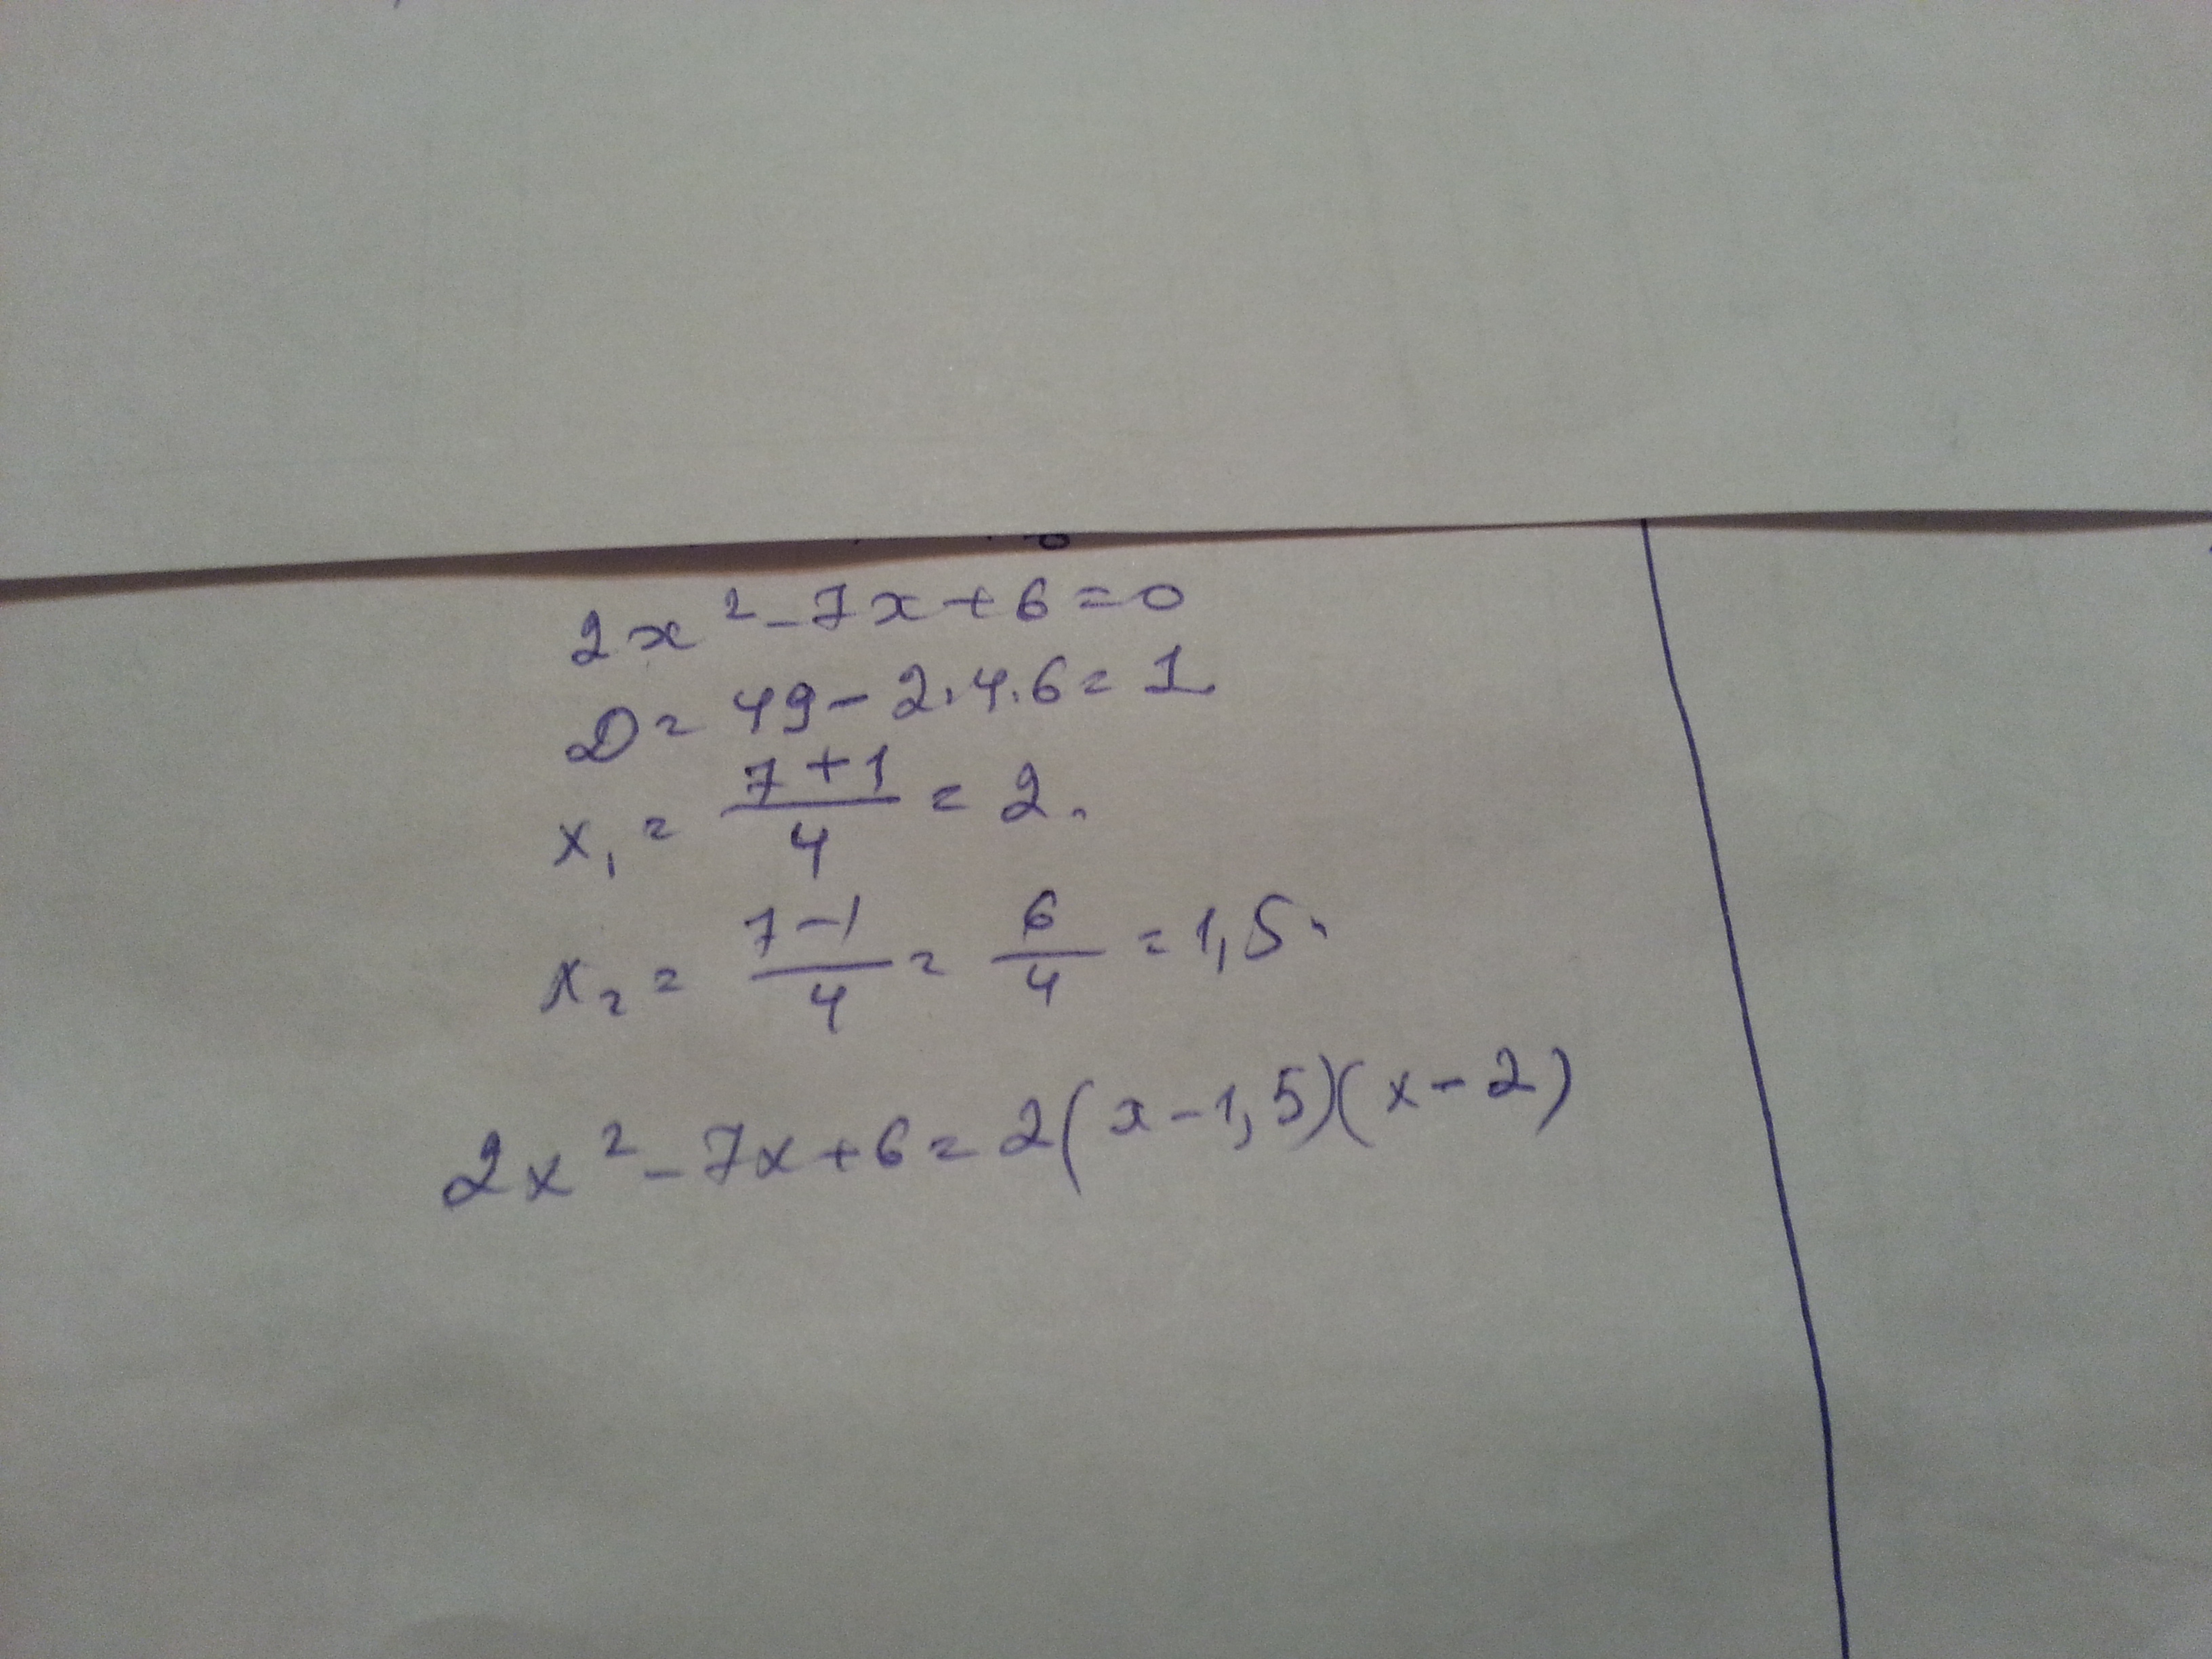 2x² - 7x + 6 = 0
D = 49 - 2·4·6 = 1
x₁ = (7+1)/4 = 2.
x₂ = (7-1)/4 = 6/4 = 1,5.
2x² - 7x + 6 = 2(x - 1,5)(x - 2)